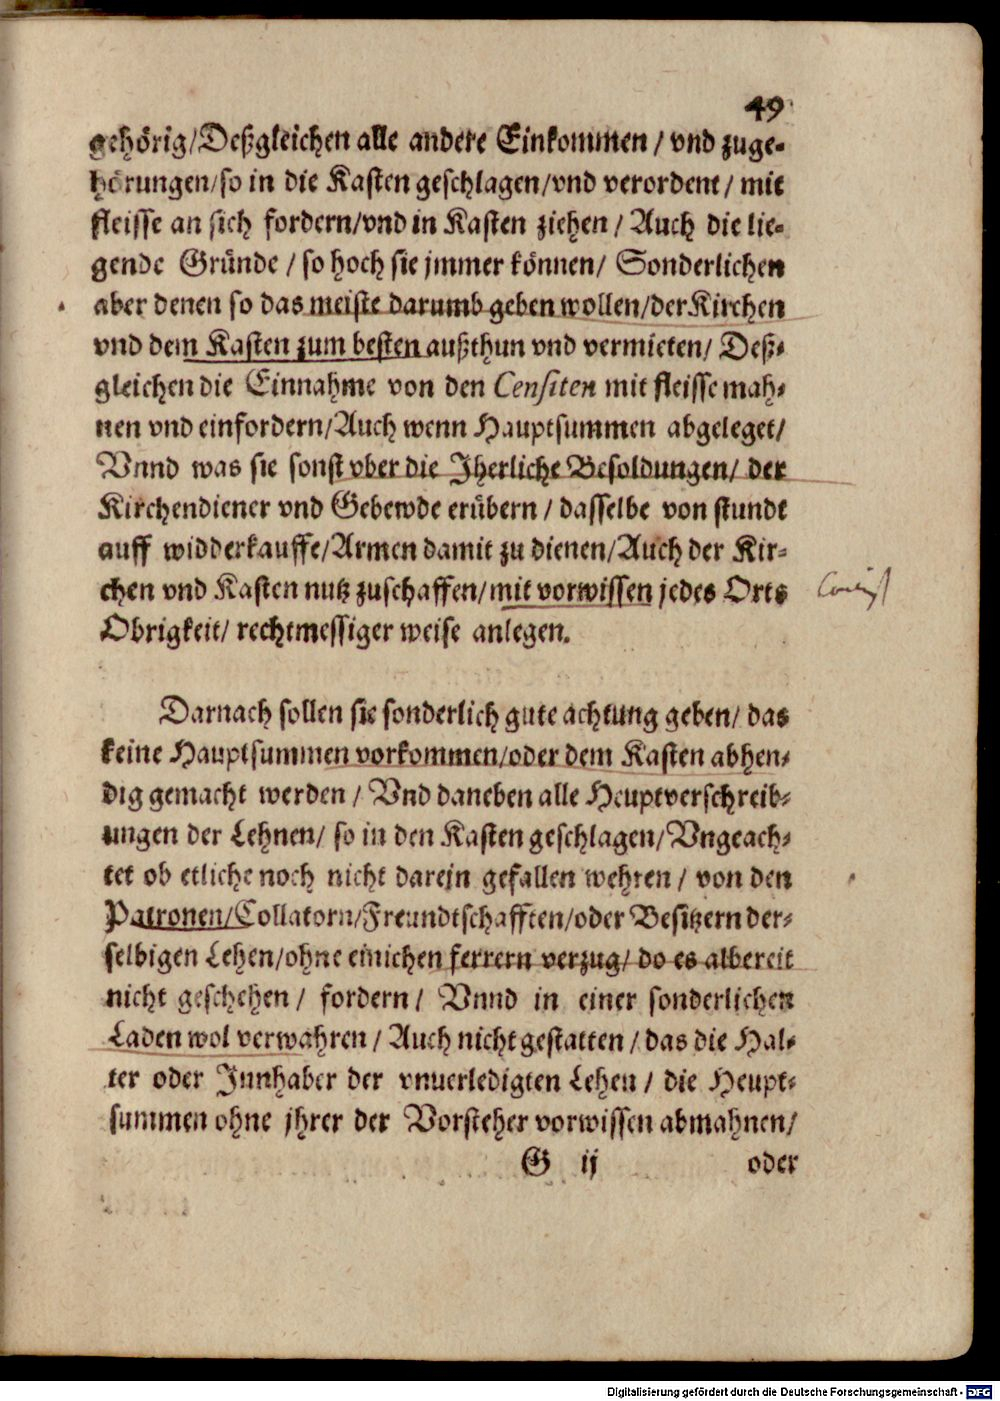 49
gehörig/Deßgleichen alle andere Einkommen / vnd zuge-
hörungen/so in die Kasten geschlagen/vnd verordent / mit
fleisse an sich fordern/vnd in Kasten ziehen / Auch die lie-
gende Gründe / so hoch sie jmmer können/ Sonderlichen
aber denen so das meiste darumb geben wollen/der Kirchen
vnd dem Kasten zum besten außthun vnd vermieten/ Deß-
gleichen die Einnahme von den Censiten mit fleisse mah-
nen vnd einfordern/Auch wenn Hauptsummen abgeleget/
Vnnd was sie sonst vber die Jherliche Besoldungen/ der
Kirchendiener vnd Gebewde erübern / dasselbe von stundt
auff widderkauffe/Armen damit zu dienen/Auch der Kir-
chen vnd Kasten nutz zuschaffen/mit vorwissen jedes Orts
Obrigkeit/ rechtmessiger weise anlegen.
Darnach sollen sie sonderlich gute achtung geben/ das
keine Hauptsummen vorkommen/oder dem Kasten abhen-
dig gemacht werden / Vnd daneben alle Heuptverschreib-
ungen der Lehnen/ so in den Kasten geschlagen/Vngeach-
tet ob etliche noch nicht darejn gefallen wehren / von den
Patronen/Collatorn/Freundtschafften/oder Besitzern der-
selbigen Lehen/ohne einichen ferrern verzug/ do es albereit
nicht geschehen / fordern / Vnnd in einer sonderlichen
Laden wol verwahren / Auch nicht gestatten / das die Hal-
ter oder Innhaber der vnuerledigten Lehen / die Heupt-
summen ohne jhrer der Vorsteher vorwissen abmahnen/
G ij oder
Digitalisierung gefördert durch die Deutsche Forschungsgemeinschaft - DFG